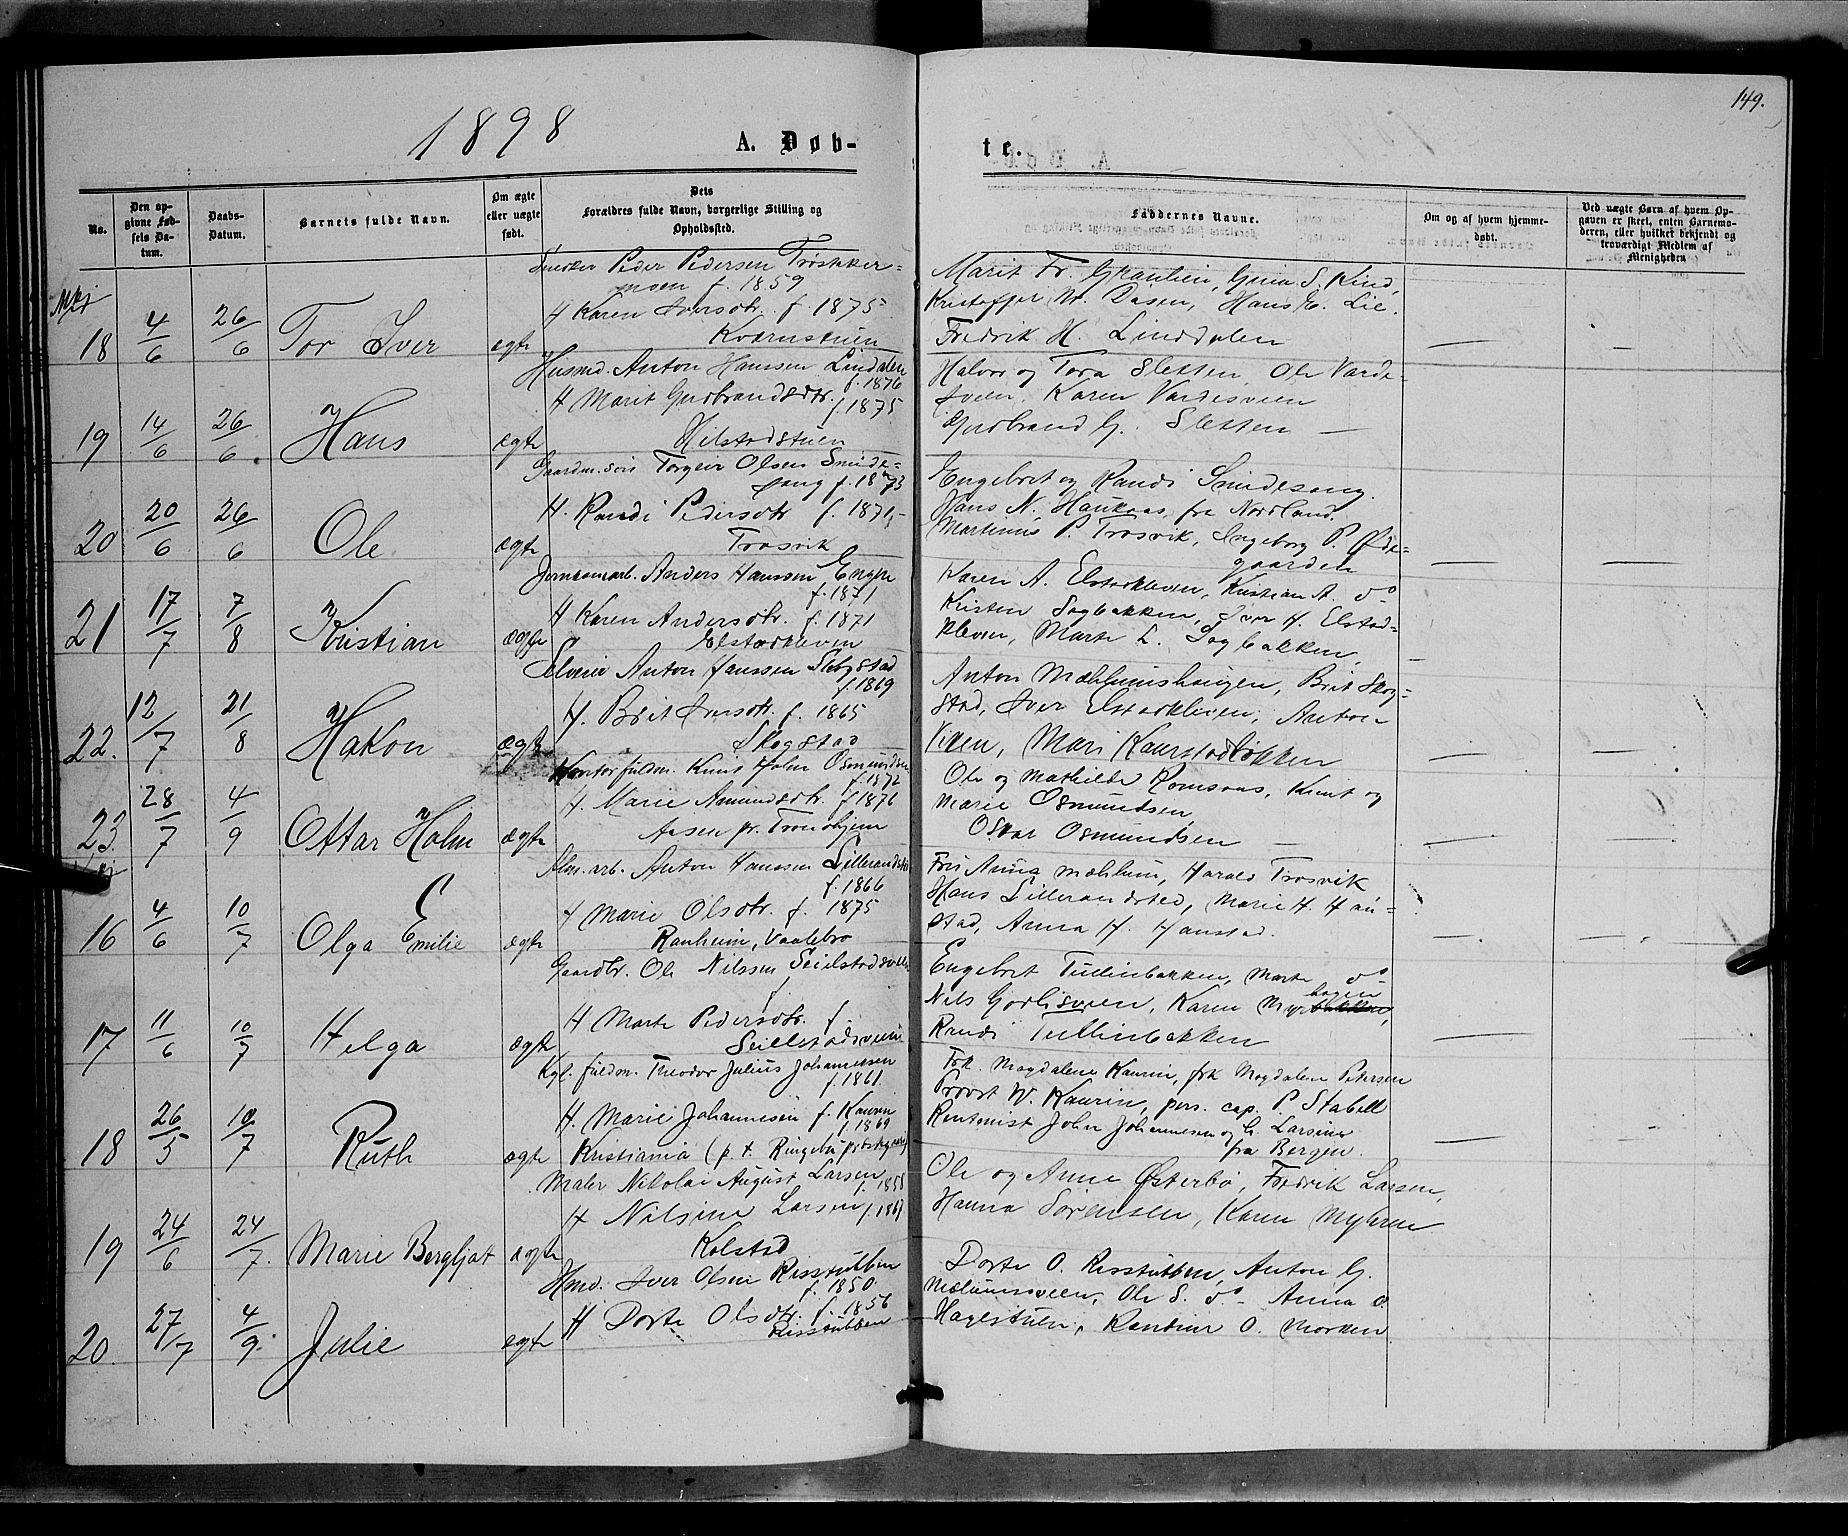 149.
1898
A. Døb-
te.
No.
Den op-
givne Fød-
sels Da-
tum.
Daabs-
Datum.
Barnets fulde Navn.
Om ægte
eller uægte
født.
Dets
Forældres fulde Navn, borgerlige Stilling og
Opholdssted.
Faddernes Navne.
Om og af hvem hjemme-
døbt.
Ved uægte Børn af hvem Op-
gaven er skeet, enten Barnemo-
deren, eller hvilket bekjendt og
troværdigt Medlem af
Menigheden
18 4/6 26/6 Tor Iver ægte
Peder Pedersen
moen f. 1859
H Karen Iversdtr. f. 1875
Kværnstuen
Marit Fr. S. Kind,
Hans E. Lie.
Fredrik H. Linddalen
19 14/6 26/6 Hans ægte
Husmd. Anton Hanssen Lindalen
f. 1876
H Marit Gudbrandsdtr. f. 1875
Hilstadstuen
Halvor og Tora Sletten, Ole Vards-
sveen, Karen Vardesveen
Gudbrand G. Sletten
20 20/6 26/6 Ole ægte
Gaardm. søn Torgeir Olsen Sminde-
sang f. 1873
H. Randi Pedersdtr f. 1871
Trosvik
Engebret og Randi Smidesang.
Hans N. Haukaas fra Nordland.
Martinus P. Trosvik, Ingeborg P. Øde-
gaarden
21 17/7 7/8 Kristian ægte
Jernbanearb. Anders Hanssen Engen
f. 1871
H Karen Andersdtr. f. 1871
Elstadkleven
Karen A. Elstadkleven, Kristian A. do
Kristen Sagbakken, Iver H. Elstad-
kleven, Marte L. Sagbakken,
22. 12/7 21/8 Hakon ægte
Selveier Anton Hanssen Skogstad
f. 1869
H. Brit Iversdtr. f. 1865
Skogstad
Anton Mæhlumshaugen, Brit Skog-
stad, Iver Elstadkleven, Anton
Viken, Mari Kaurstadløkken
23. 28/7 4/9 Ottar Holm ægte
Kontorfuldm. Knut Holm Osmundsen
f. 1872
H. Marie Amundsdtr. f 1876
Aasen pr. Trondhjem
Ole og Mathilde Romsaas, Knut og
Marie Osmundsen,
Oskar Osmundsen
16 4/6 10/7 Olga Emilie ægte
Alm. arb. Anton Hanssen
f. 1866
H Marie Olsdtr. f. 1875
Ranheim, Vaalebro
Frk Anna Mæhlum, Harald Trosvik
Hans Lillerandsted, Marie H. Han-
stad, Anna H. Hanstad.
17 11/6 10/7 Helga ægte
Gaardbr. Ole Nilssen Seielstadsveen
f
H Marte Pedersdtr. f.
Seielstadsveen
Engebret Tullinbakken, Marte do
Nils Gorlisveen, Karen Myrhagen,
Randi Tullinbakken
18 26/5 10/7 Ruth ægte
Kgl. fuldm. Theodor Julius Johannesen
f. 1861
H. Marie Johannesen f. Kaurin
f. 1869
Kristiania (p. t. Ringebu prestgaard)
Frk. Magdalene Kaurin, frk Magdalene Petersen
Provst W. Kaurin, pers. cap. P. Stabell
Rentenist John Johannesen og G. Larsen
fra Bergen.
19 24/6 24/7. Marie Bergljot ægte
Maler Nikolai August Larsen f. 1855
H Nilsine Larsen f. 1861
Kolstad
Ole og Anne Østerbø, Fredrik Larsen,
Hanna Sørensen, Karen Myhren
20. 27/7 4/9. Julie ægte
Hmd. Iver Olsen Risstubben
f. 1850
H Dorte Olsdtr. f. 1856
Risstubben
Dorte O. Risstubben, Anton G.
Mælumsveen, Ole S. do - Anna O.
Hagestuen, Rantine O. Morken